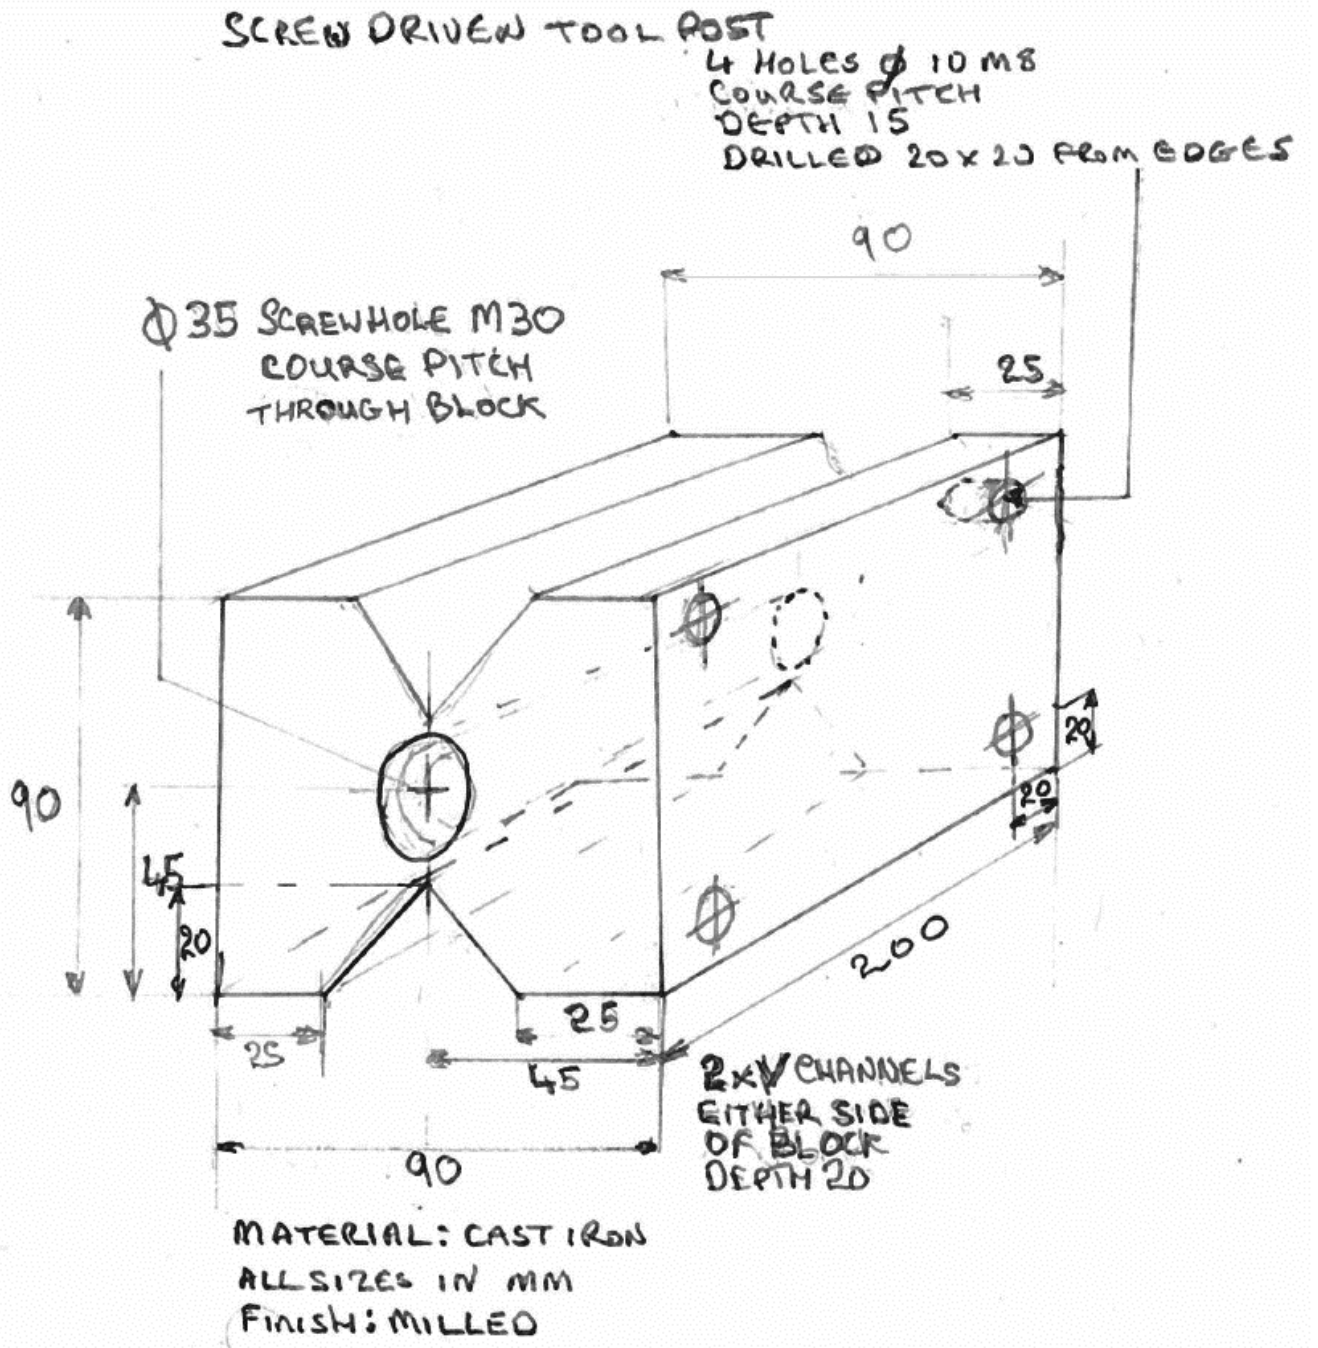 SCREW DRIVEN TOOL POST
4 HOLES ϕ 10 M8
COURSE PITCH
DEPTH 15
DRILLED 20 x 20 FROM EDGES
90
ϕ35 SCREWHOLE M30
COURSE PITCH
THROUGH BLOCK
25
20
90
20
45
20
200
25
25
45
2xV CHANNELS
EITHER SIDE
OF BLOCK
DEPTH 20
90
MATERIAL: CAST IRON
ALL SIZES IN MM
FINISH: MILLED